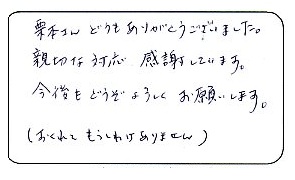 栗本さん どうもありがとうございました。
親切な対応 感謝しています。
今後もどうぞよろしくお願いします。
(おくれてもうしわけありません)